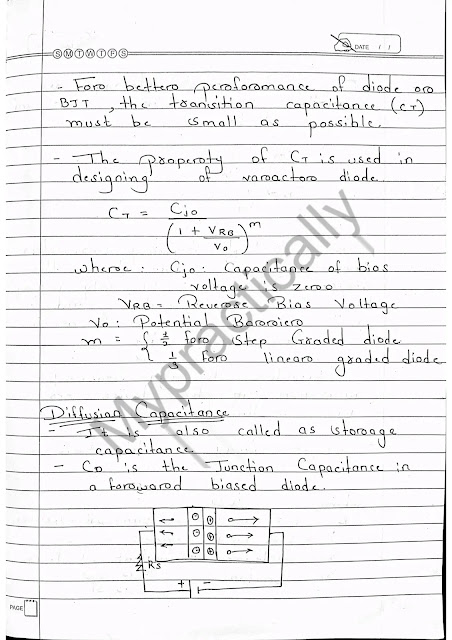 S M T W T F S
DATE / /
- For better performance of diode or
BJT, the transition capacitance (CT)
must be small as possible.
- The property of CT is used in
designing of varactor diode.
CT = Cjo / (1 + VRB / Vo)^m
where : Cjo : Capacitance of bias
voltage is zero
VRB = Reverse Bias Voltage
Vo : Potential Barrier
m = { 1/2 for step Graded diode
{ 1/3 for linear graded diode
Diffusion Capacitance
- It is also called as storage
capacitance
- CD is the Junction Capacitance in
a forward biased diode.
RS
+ -
PAGE
Mypractically